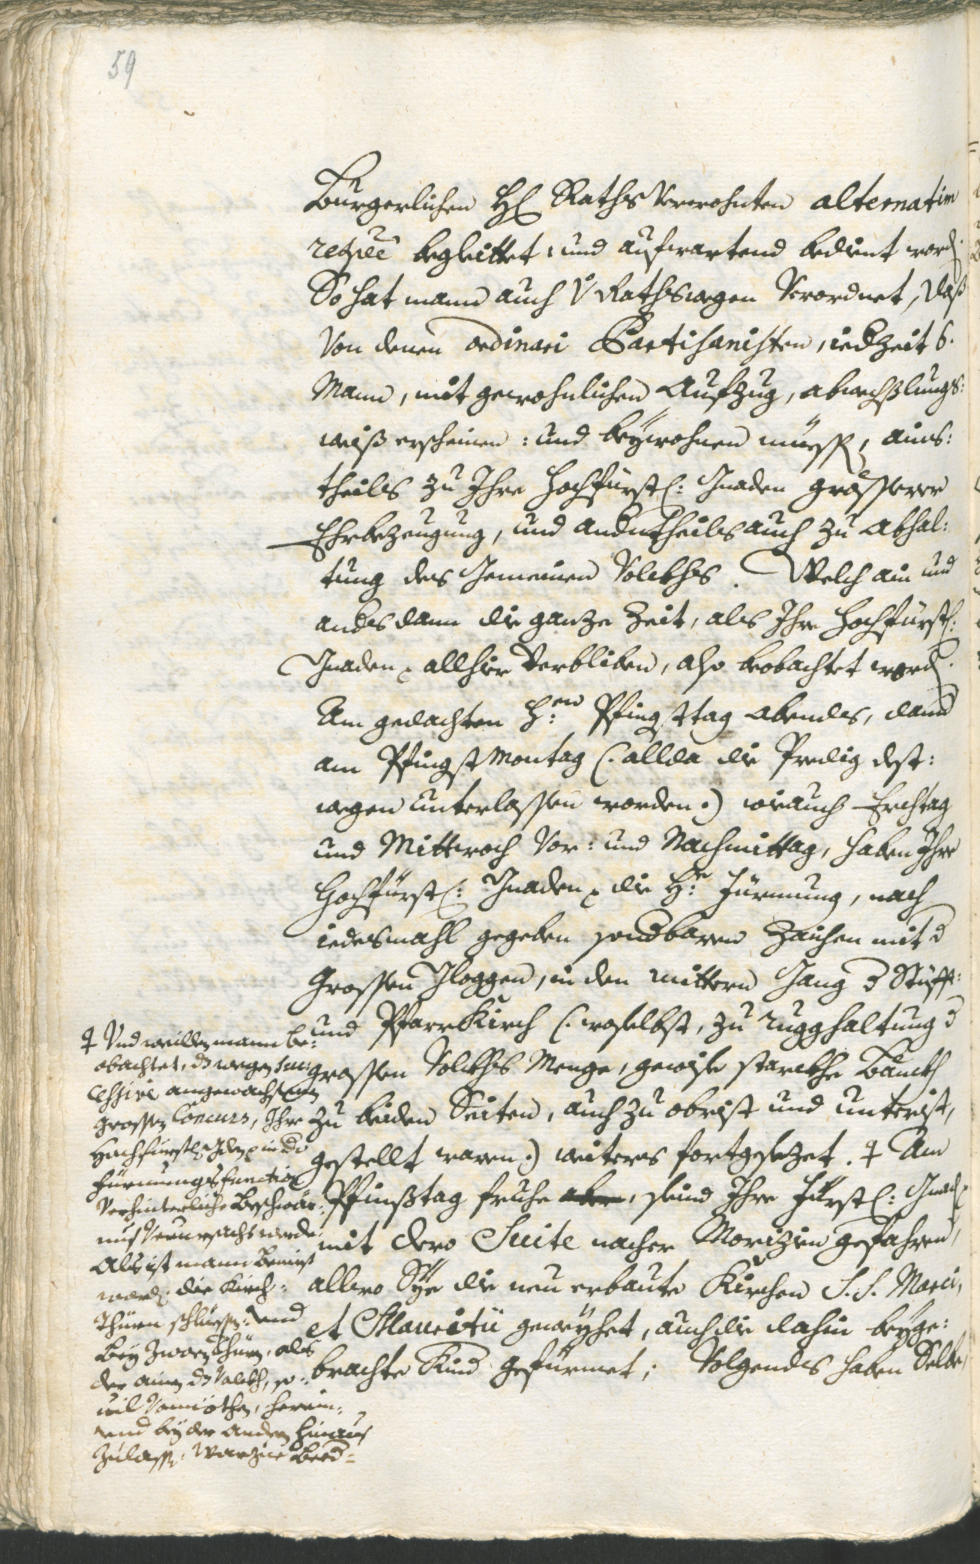 59
Burgerlichen H. Raths Verwohnten alternatim
respēe begleittet: und aufwartend bedient word.
So hat mann auch V Rathswegen Verordnet, daß
Von denen ordinari Partisanisten, iedZeit 6.
Mann, mit gewohnlichen Aufzug, abwexßlungs:
weiß erscheinen: und beÿwohnen müess, ains:
theils zu Ihro Hochfürstl: Gnaden grössere
Ehrbezeugung, und anderntheils auch zu abhal:
tung des Gemeinen Volckhs. Welch ain und
anders dann die ganze Zeit, als Ihro Hochfürstl:
Gnaden allhier Verbliben, also beobachtet word.
Am gedachten H:en Pfingsttag abends, dann
am Pfingst Montag (: allda die Predig dest:
wegen unterlassen worden:) wie auch Erchtag
und Mittwoch Vor: und Nachmittag, haben Ihro
Hochfürstl: Gnaden die H: Fürmung, nach
iedesmahl gegeben sondbaren Zaichen mit d
Grossen Gloggen, in den mittern Gang d Stüfft:
und PfarrKirch (: woselbst, zu rugghaltung d
grossen Volckhs Menge, gewise starckhe Bänckh
zu beiden Seiten, auch zu obrist und unterist,
gestellt waren:) weiters fortgesezet. ‡ Am
Pfinßtag fruhe aber, seind Ihro Fürstl: Gnad
mit dero Suite nacher Morizen gefahren,
allwo Sÿe die neu erbaute Kirchen S. S. Marci,
et Mauritii geweÿhet, auch die dahin beÿge:
brachte Kind gefürmet; Volgends haben Selbe
‡ Und weillen mann be:
obachtet, dz wegen suc
cessive angewachsenen
grossen Concurs, Ihro
Hochfürstl. Gdn in d
Fürmungs function
Verhinterliche Beschwär:
nus Verursacht werde
Als ist mann
word, die Kirch:
Thüren schliessen: und
beÿ zwaÿ Thüren, als
der ainen dz Volckh, so
vil Vonnöthen, herein:
und beÿ der andern hinaus
zulassen: Warzue